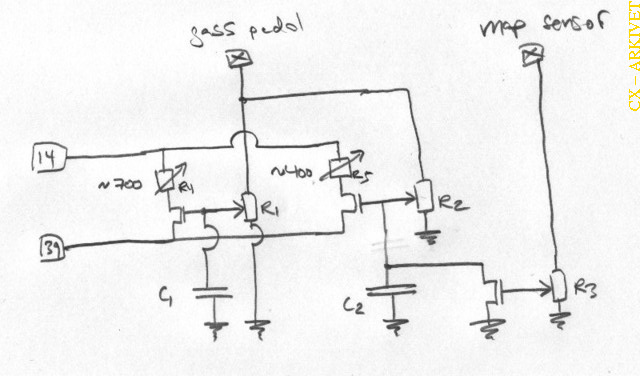 gass pedal
map sensor
CX – ARKIVET
14
~700
R4
R1
~400
R5
R2
39
C1
C2
R3